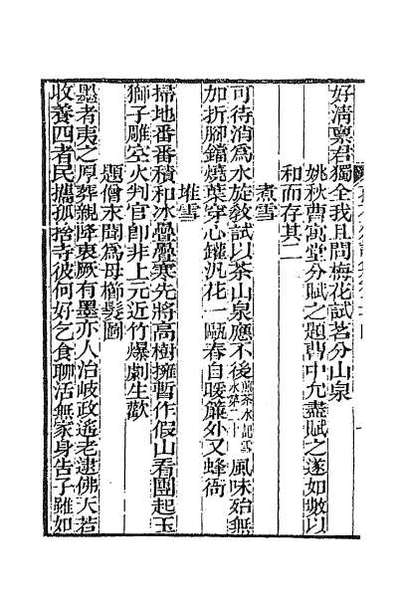 好淸稟君獨全我且問梅花試茗分山泉
姚秋曹寓堂分賦之題曹中允盡賦之遂如數以
和而存其二
煮雪
可待消爲水旋敎試以茶山泉應不後煎茶水記雪水第二十風味始無
加折腳鐺燒葉穿心鑵汎花一甌春自暖簾外又蜂衙
堆雪
掃地番番積和冰疊疊寒先將高樹擁暫作假山看團起玉
獅子雕空火判官卽非上元近竹爆劇生歡
題僧末聞爲母櫛髮圖
墨者夷之厚葬親降衷厥有墨亦人治岐政遙老逮佛大若
收養四者民攜孤捨寺彼何好乞食聊活無家身告子雖如